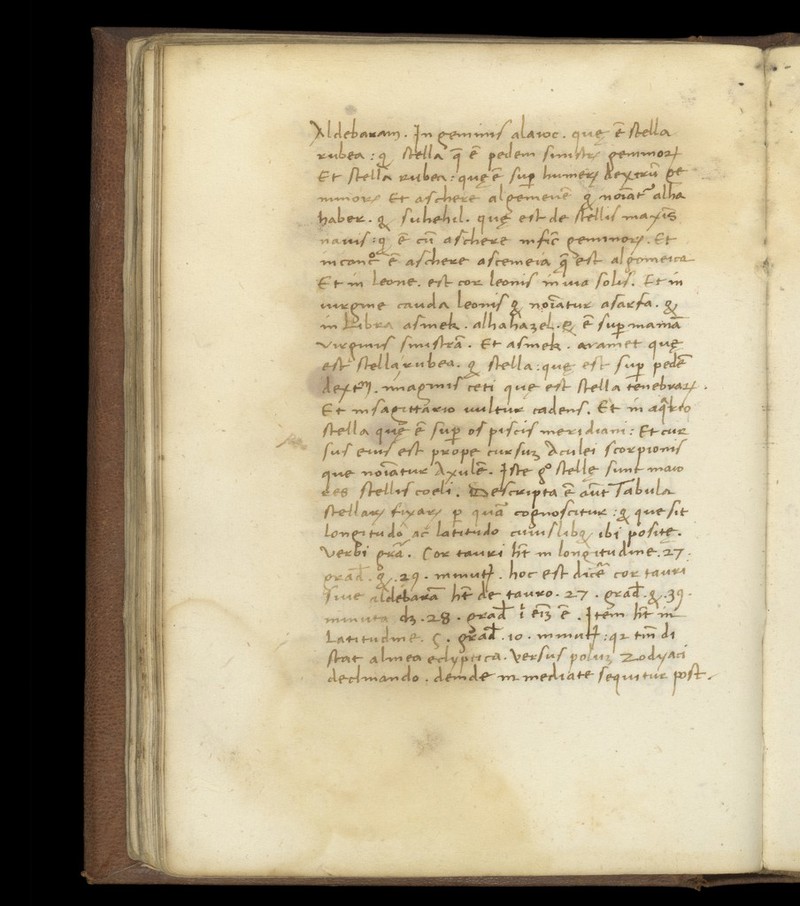 Aldebaram. In geminis alaioc. quę ē stella
rubea: & stella q̄ ē pedem sinistrꝝ geminoꝝ
Et stella rubea: quę ē suꝑ humerꝝ dextrū ge
minoꝝ Et aschere algemeuē & noīatᷣ alha
haber. & suhehil. quę est de stellis maxīs
nauis: & ē cū aschere in fic̄ geminoꝝ. Et
in canc̄o ē aschere ascemeia q̄ est algomeica
Et in leone. est cor leonis in uia solis. Et in
uirgine cauda leonis & noīatur asarfa. &
in Libra asmek. alhahazel. & ē suꝑ mamā
Virginis sinistrā. Et asmek. aramet quę
est stella rubea. & stella: quę est suꝑ pedē
dextꝝ. imaginis ceti que est stella tenebraꝝ.
Et in sagittario uultur cadens. Et in aq̄rio
stella quę ē suꝑ os piscis meridiani: Et cur
sus eius est prope cursuꝫ Aculei scorpionis
que noīatur Axulē. Iste gᵒ stellę sunt maio
res stellis coeli. Descripta ē aūt Tabula
stellaꝝ fixaꝝ ꝑ quā cognoscitur: & que sit
longitudo ac latitudo cuiuslibꝫ ibi posite.
Verbi grā. Cor tauri hēt in longitudine. 27.
grad̄. &. 29. minutꝭ. hoc est dicē cor tauri
siue aldebarā hēt de tauro. 27. grad̄. &. 39.
minuta dꝫ. 28. grad̄ ī eīꝫ ē. Item hēt in
Latitudine. 5. grad̄. 10. minutꝭ: qꝛ tm̄ di
stat a linea eclyptica. Versus poluꝫ Zodyaci
declinando. deinde in mediate sequitur post.